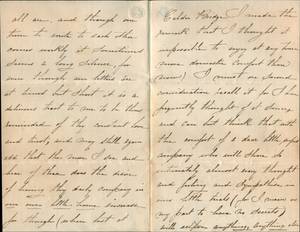 all are, and though our
turn to write to each other
comes weekly it sometimes
seems a long silence, for
even though our letters are
at times but short it is a
delicious treat to me to be thus
reminded of the constant love
and truly, and may still again
add that the more I see and
hear of thee does the desire
of having thy daily company in
our own little home increase
for though (when last at
Calder Bridge I made the
remark that I thought it
impossible to enjoy at any home
more domestic comfort than
now) I must on second
consideration recall it for I have
frequently thought of it since
and can but think that with
the comfort of a dear little
company who will share so
intimately almost every thought
and feeling and sympathise in
our little trials (for I mean on
my part to have no secrets)
will eclipse anything, anything else